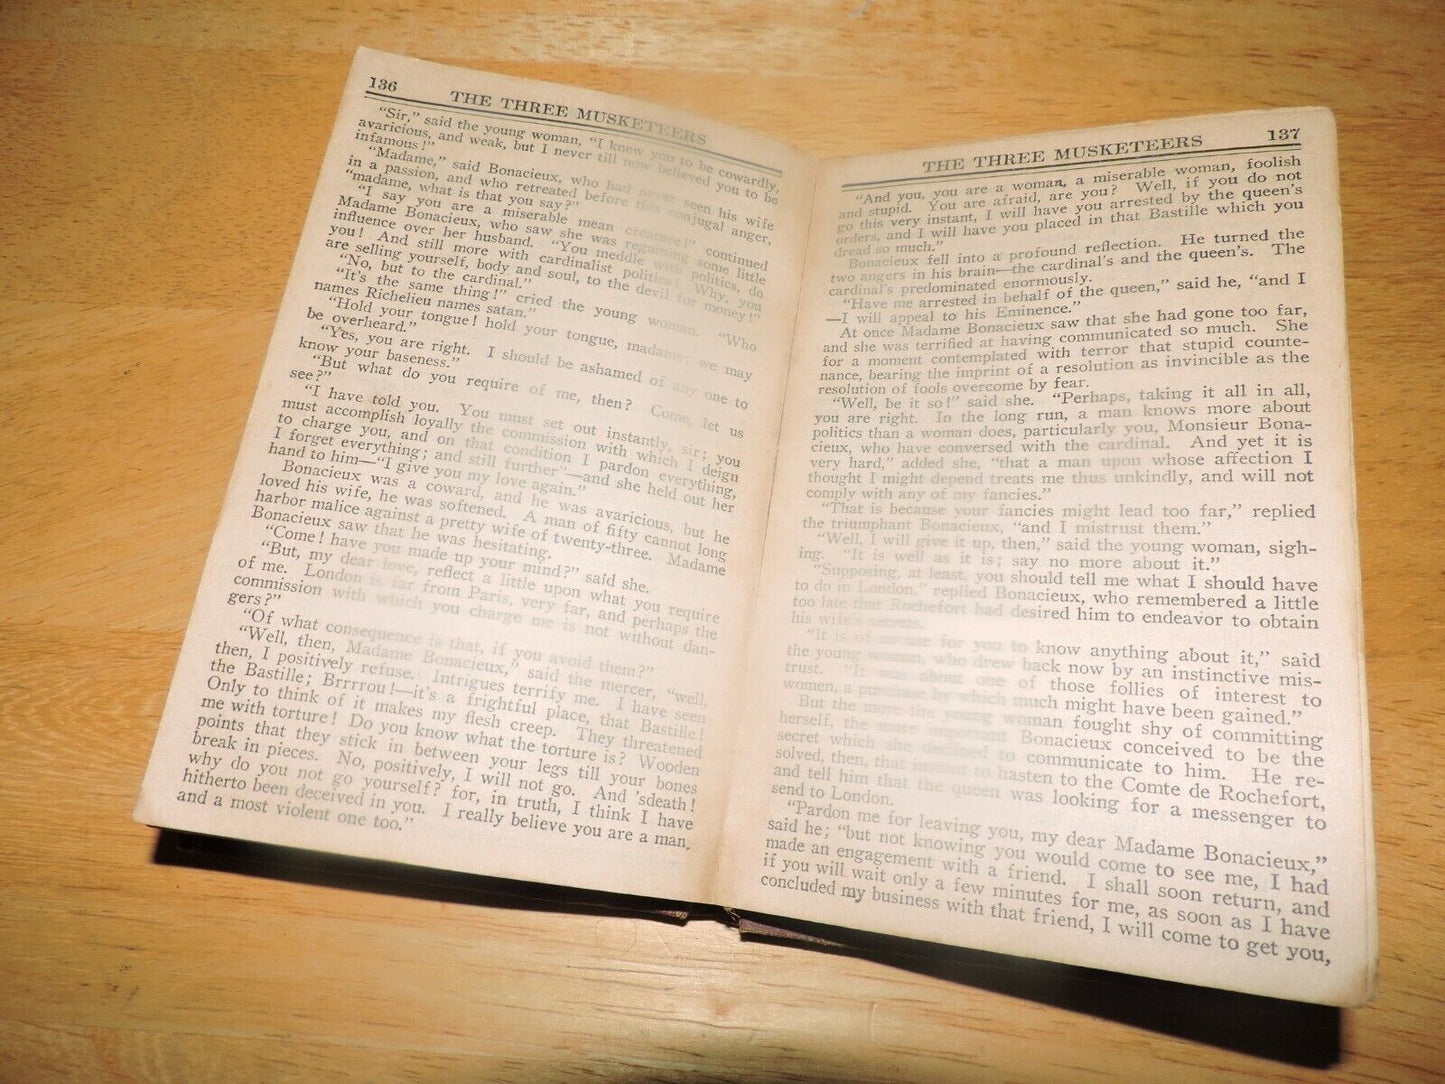 136
THE THREE MUSKETEERS
"Sir," said the young woman, "I knew you to be cowardly,
avaricious, and weak, but I never till now believed you to be
infamous!"
"Madame," said Bonacieux, who had never seen his wife
in a passion, and who retreated before this conjugal anger,
"madame, what is that you say?"
"I say you are a miserable mean creature!" continued
Madame Bonacieux, who saw she was regaining some little
influence over her husband. "You meddle with politics, do
you! And still more with cardinalist politics! Why, you
are selling yourself, body and soul, to the devil for money!"
"No, but to the cardinal."
"It's the same thing!" cried the young woman. "Who
names Richelieu names satan."
"Hold your tongue! hold your tongue, madame; we may
be overheard."
"Yes, you are right. I should be ashamed of any one to
know your baseness."
"But what do you require of me, then? Come, let us
see?"
"I have told you. You must set out instantly, sir; you
must accomplish loyally the commission with which I deign
to charge you, and on that condition I pardon everything,
I forget everything; and still further"—and she held out her
hand to him—"I give you my love again."
Bonacieux was a coward, and he was avaricious, but he
loved his wife, he was softened. A man of fifty cannot long
harbor malice against a pretty wife of twenty-three. Madame
Bonacieux saw that he was hesitating.
"Come! have you made up your mind?" said she.
"But, my dear love, reflect a little upon what you require
of me. London is far from Paris, very far, and perhaps the
commission with which you charge me is not without dan-
gers?"
"Of what consequence is that, if you avoid them?"
"Well, then, Madame Bonacieux," said the mercer, "well,
then, I positively refuse. Intrigues terrify me. I have seen
the Bastille; Brrrrou!—it's a frightful place, that Bastille!
Only to think of it makes my flesh creep. They threatened
me with torture! Do you know what the torture is? Wooden
points that they stick in between your legs till your bones
break in pieces. No, positively, I will not go. And 'sdeath!
why do you not go yourself? for, in truth, I think I have
hitherto been deceived in you. I really believe you are a man,
and a most violent one too."
THE THREE MUSKETEERS
137
"And you, you are a woman, a miserable woman, foolish
and stupid. You are afraid, are you? Well, if you do not
go this very instant, I will have you arrested by the queen's
orders, and I will have you placed in that Bastille which you
dread so much."
Bonacieux fell into a profound reflection. He turned the
two angers in his brain—the cardinal's and the queen's. The
cardinal's predominated enormously.
"Have me arrested in behalf of the queen," said he, "and I
—I will appeal to his Eminence."
At once Madame Bonacieux saw that she had gone too far,
and she was terrified at having communicated so much. She
for a moment contemplated with terror that stupid counte-
nance, bearing the imprint of a resolution as invincible as the
resolution of fools overcome by fear.
"Well, be it so!" said she. "Perhaps, taking it all in all,
you are right. In the long run, a man knows more about
politics than a woman does, particularly you, Monsieur Bona-
cieux, who have conversed with the cardinal. And yet it is
very hard," added she, "that a man upon whose affection I
thought I might depend treats me thus unkindly, and will not
comply with any of my fancies."
"That is because your fancies might lead too far," replied
the triumphant Bonacieux, "and I mistrust them."
"Well, I will give it up, then," said the young woman, sigh-
ing. "It is well as it is; say no more about it."
"Supposing, at least, you should tell me what I should have
to do in London," replied Bonacieux, who remembered a little
too late that Rochefort had desired him to endeavor to obtain
his wife's secrets.
"It is of no use for you to know anything about it," said
the young woman, who drew back now by an instinctive mis-
trust. "It was about one of those follies of interest to
women, a purchase by which much might have been gained."
But the more the young woman fought shy of committing
herself, the more important Bonacieux conceived to be the
secret which she declined to communicate to him. He re-
solved, then, that instant to hasten to the Comte de Rochefort,
and tell him that the queen was looking for a messenger to
send to London.
"Pardon me for leaving you, my dear Madame Bonacieux,"
said he; "but not knowing you would come to see me, I had
made an engagement with a friend. I shall soon return, and
if you will wait only a few minutes for me, as soon as I have
concluded my business with that friend, I will come to get you,